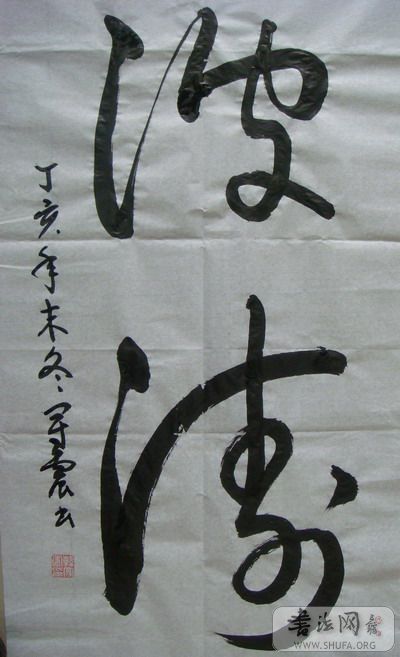 波涛
丁亥年末冬震书
書法网
WWW.SHUFA.ORG